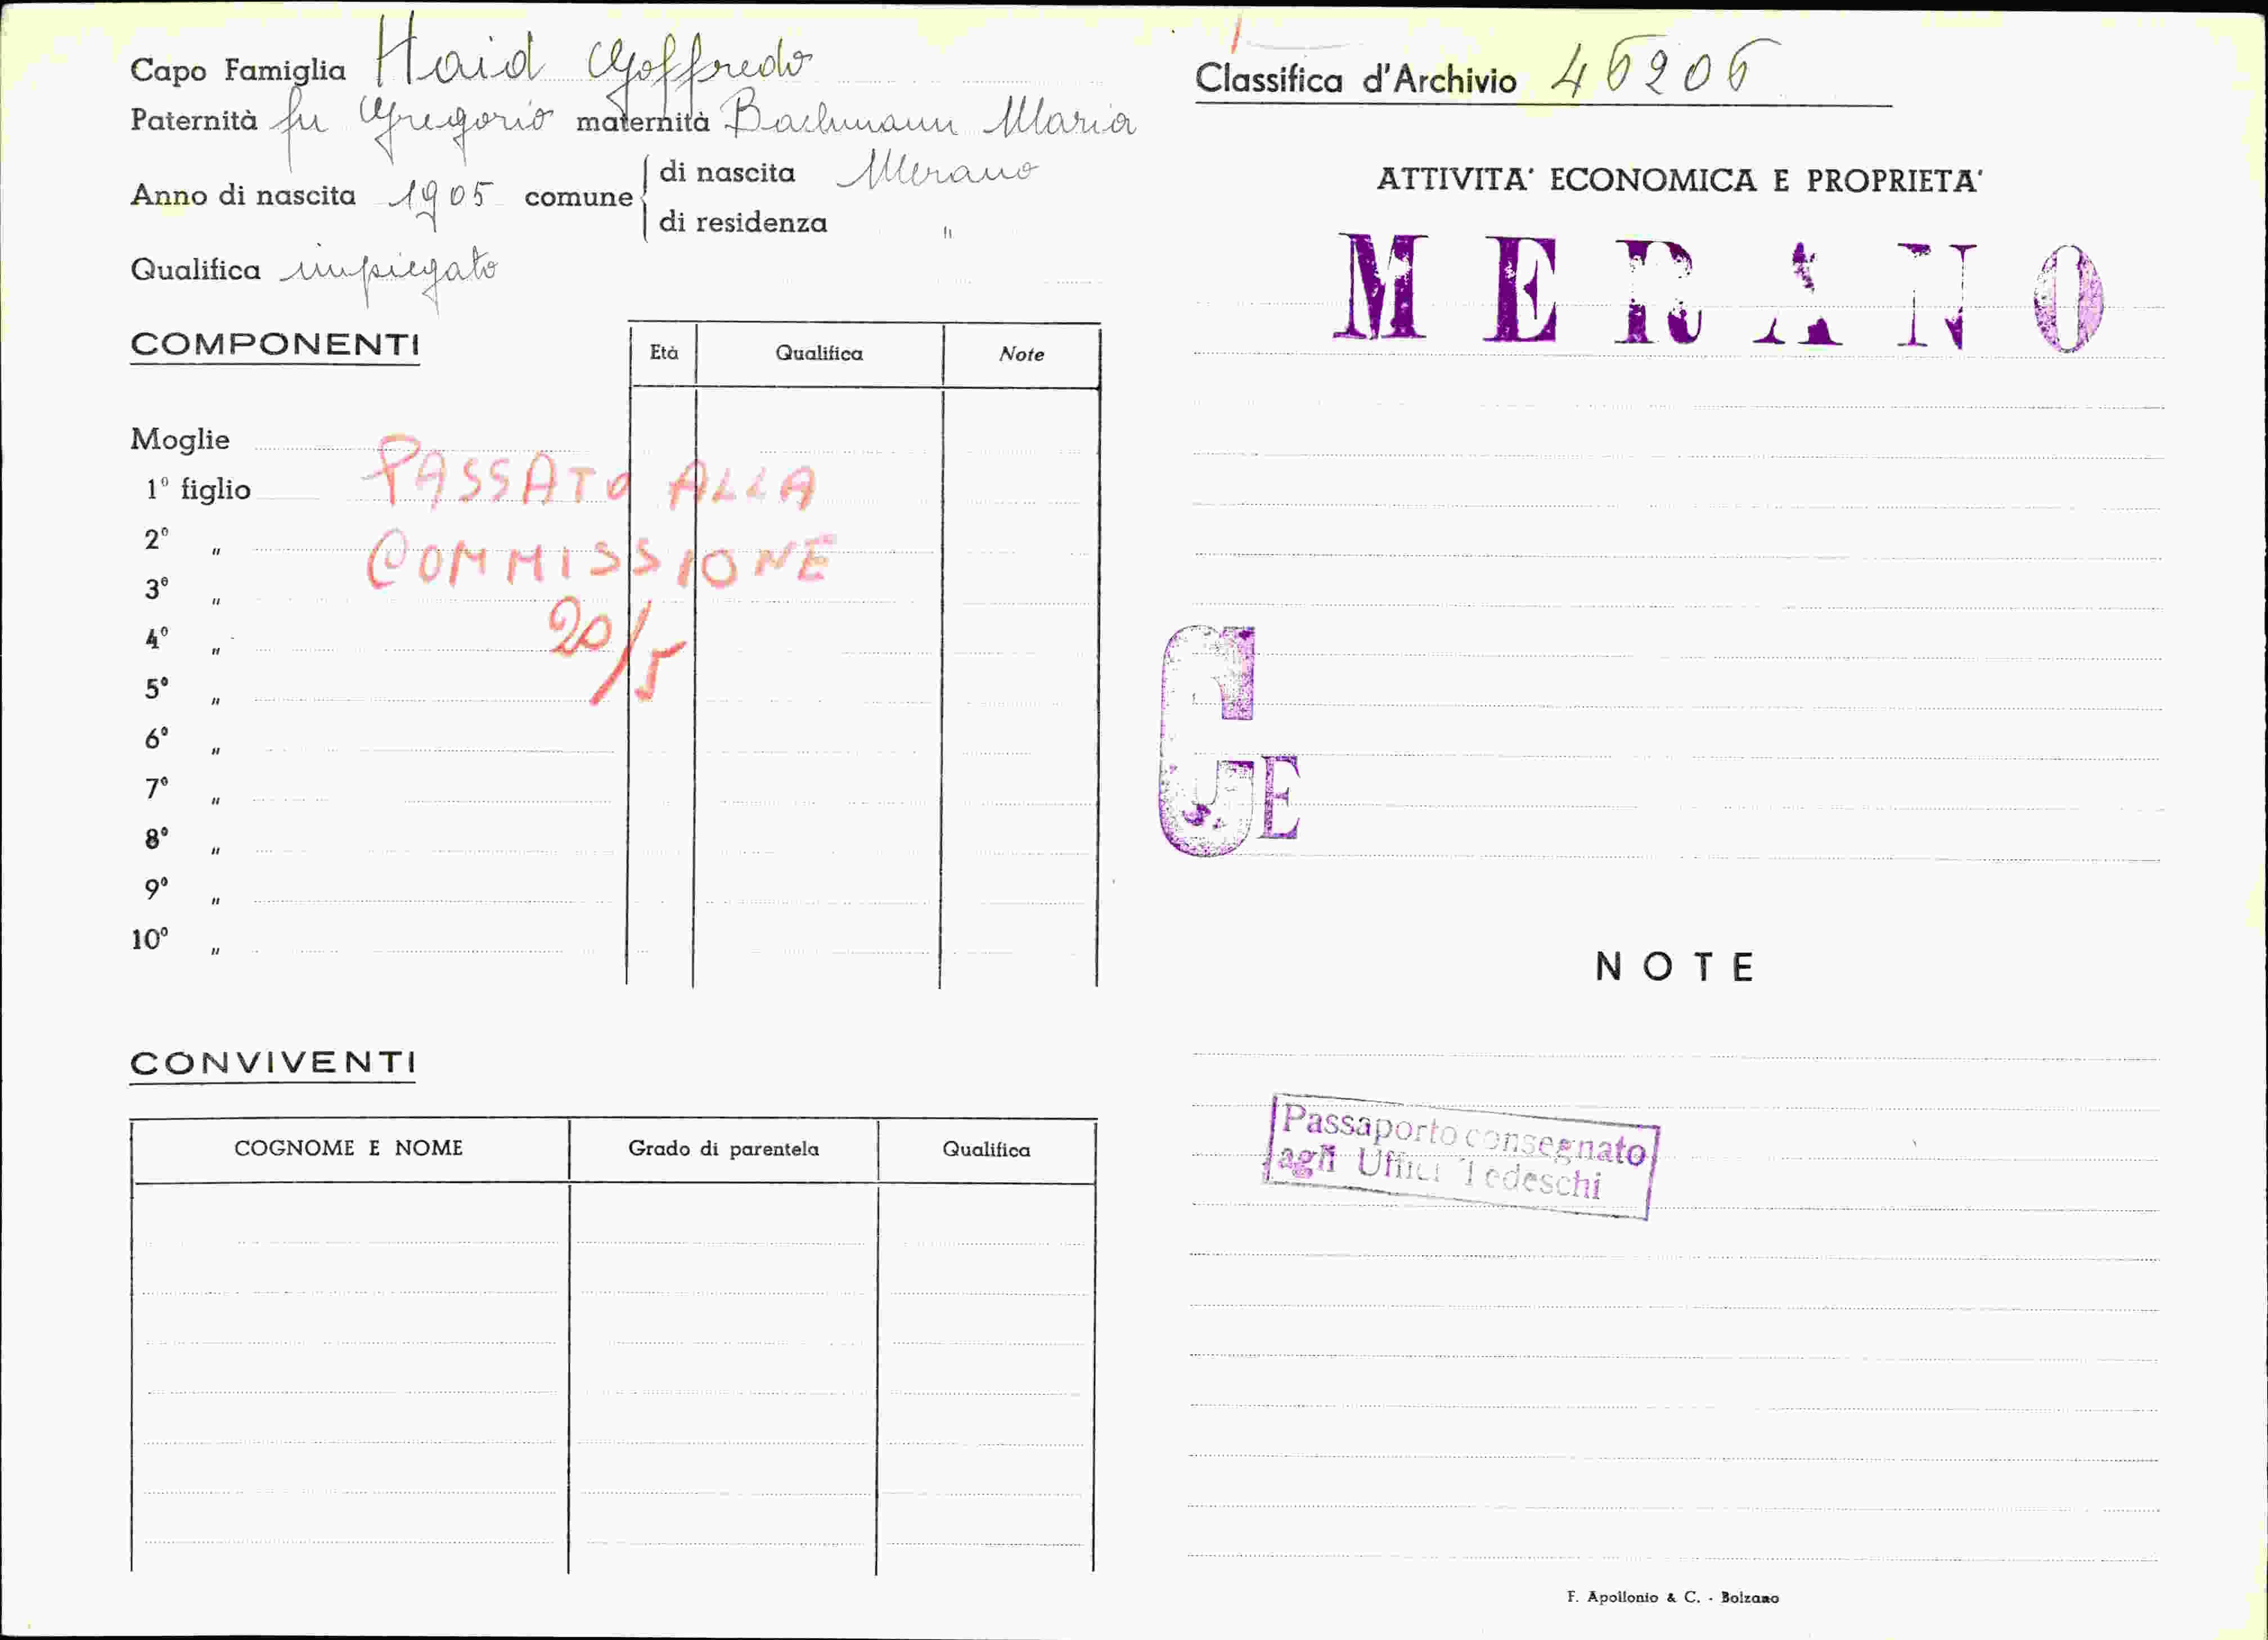 Capo Famiglia Haid Goffredo
Paternità fu Gregorio maternità Bachmann Maria
Anno di nascita 1905 comune
di nascita Merano
di residenza "
Qualifica impiegato
COMPONENTI
Età Qualifica Note
Moglie
1º figlio
2º "
3º "
4º "
5º "
6º "
7º "
8º "
9º "
10º "
PASSATO ALLA
COMMISSIONE
20/5
CONVIVENTI
COGNOME E NOME Grado di parentela Qualifica
Classifica d'Archivio 46206
ATTIVITA' ECONOMICA E PROPRIETA'
MERANO
G E
NOTE
Passaporto consegnato
agli Uffici Tedeschi
F. Apollonio & C. - Bolzano